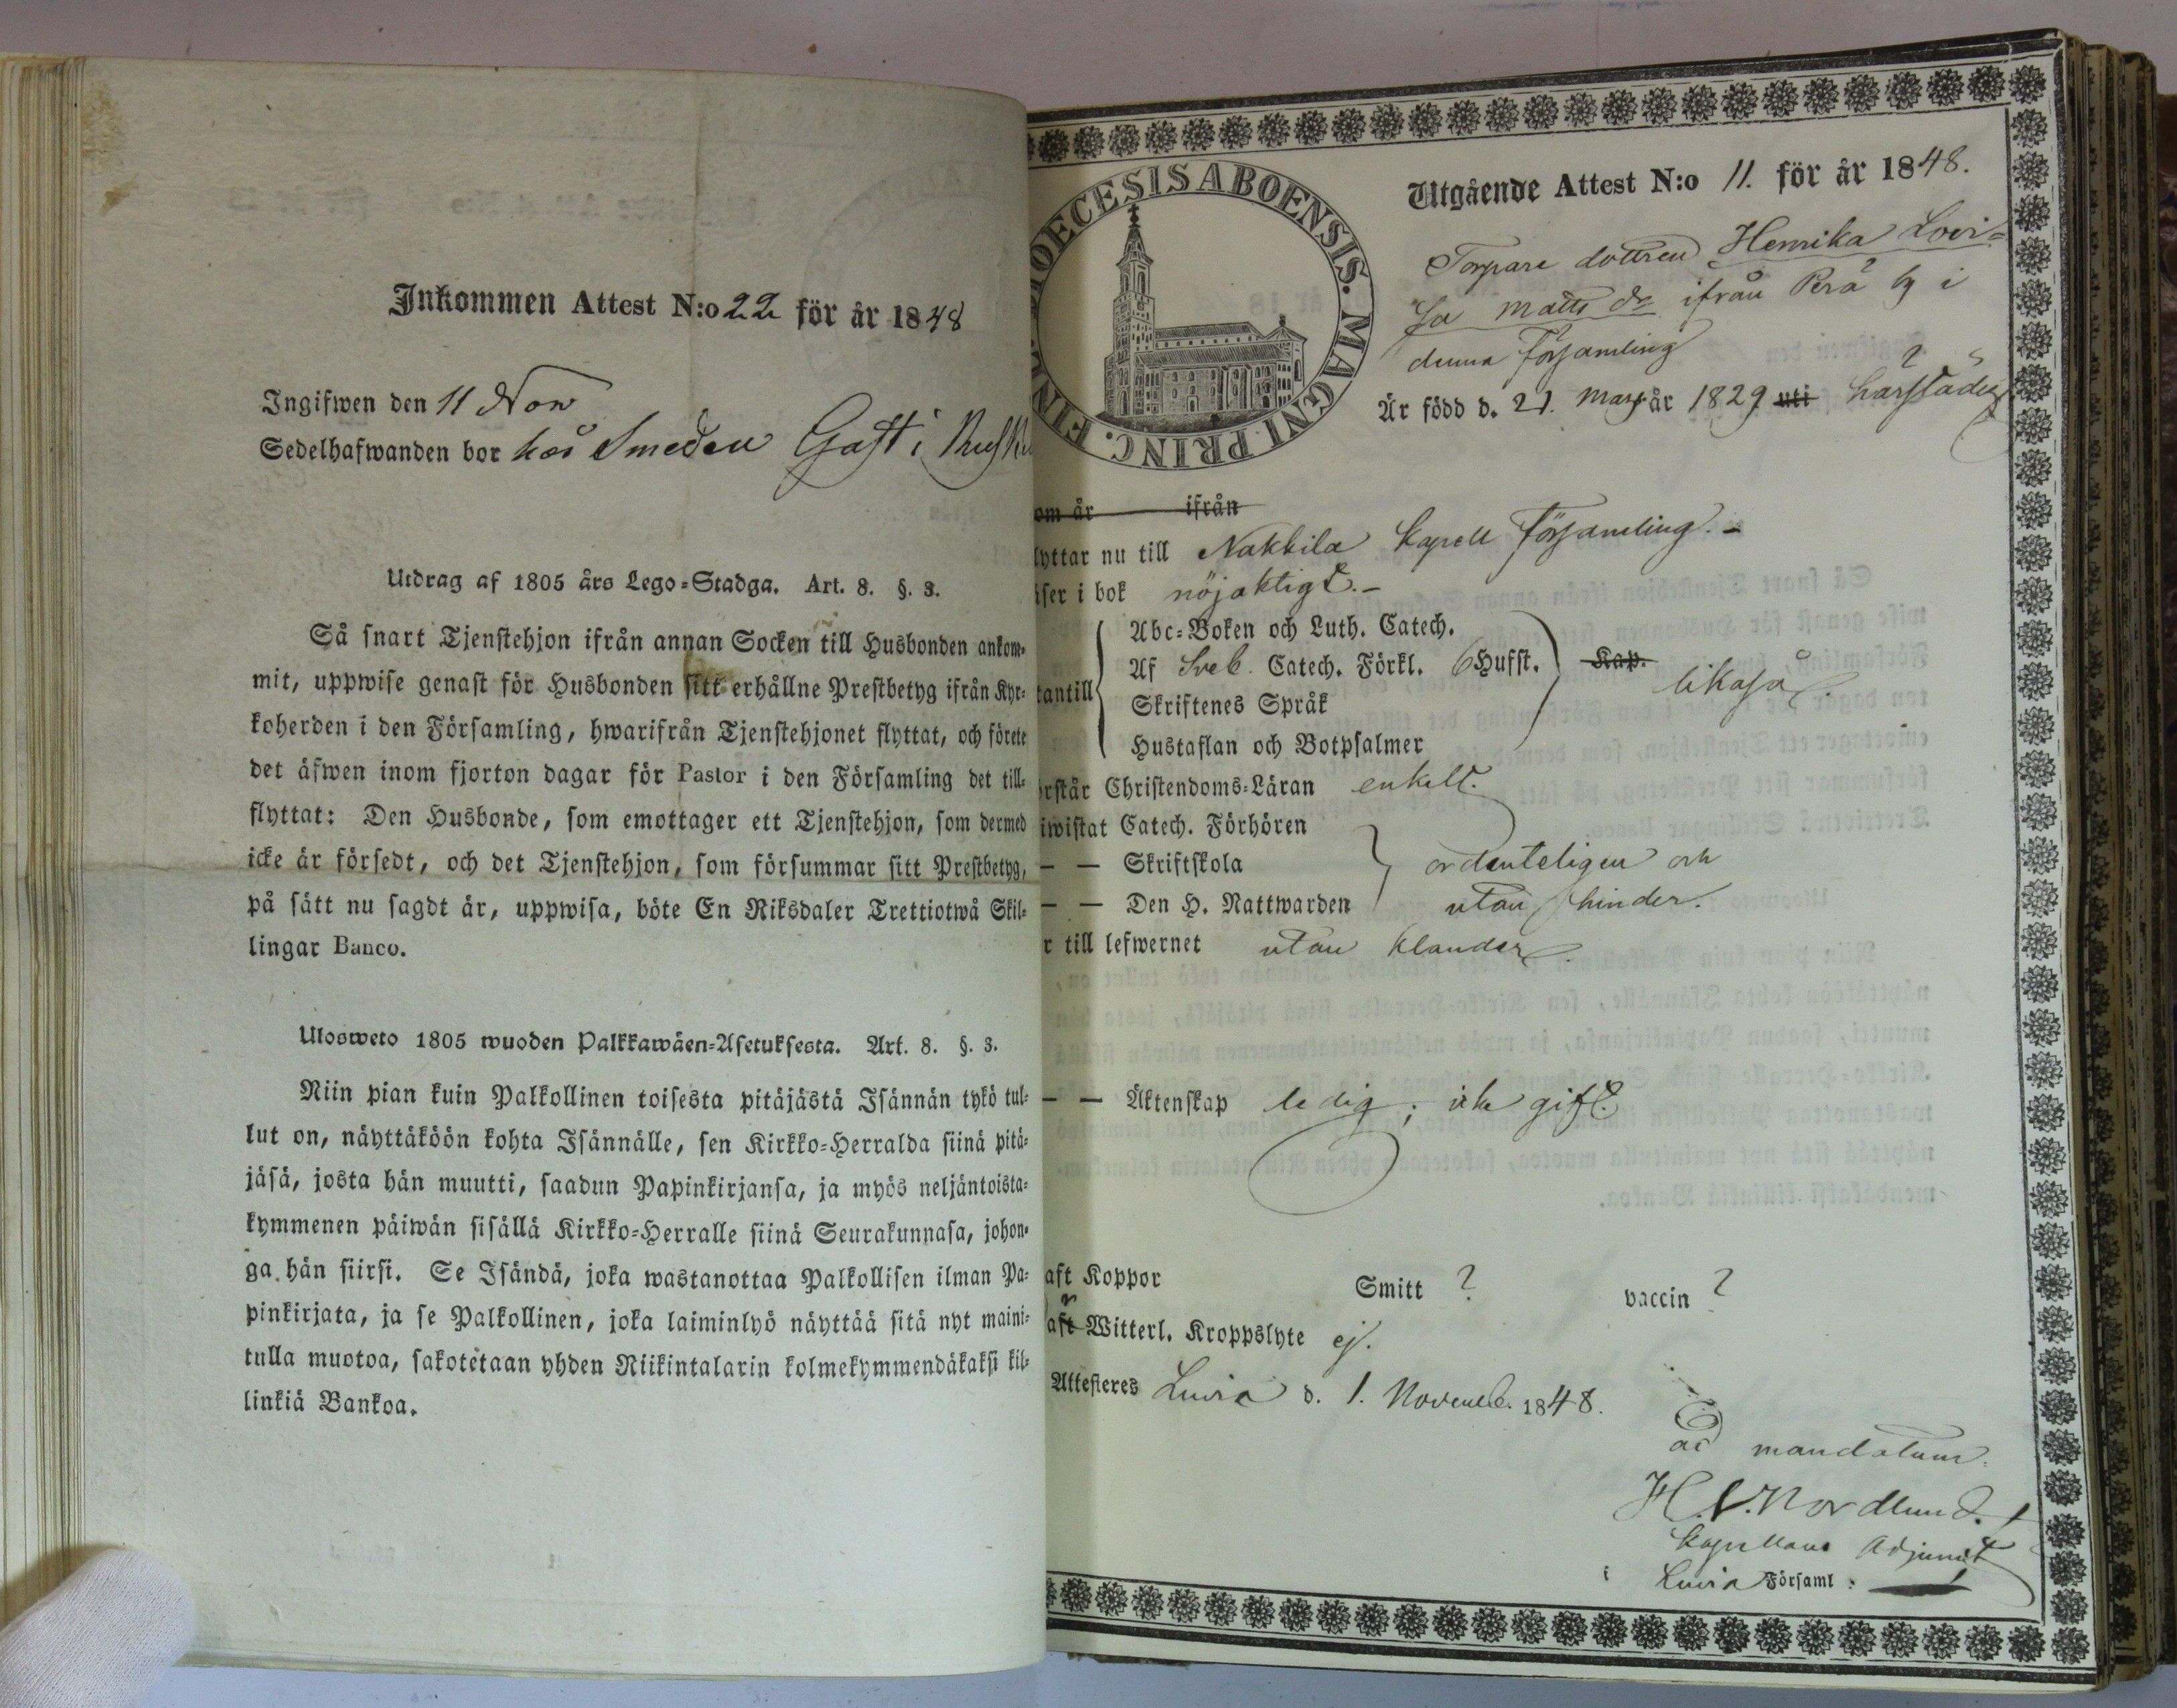 Inkommen Attest N:o 22 för år 1848
Ingifwen den 11 Nov
Sedelhafwanden bor hos Smeden Gast i
Utdrag af 1805 års Lego-Stadga. Art. 8. §. 3.
Så snart Tjenstehjon ifrån annan Socken till Husbonden ankom-
mit, uppwise genast för Husbonden sitt erhållne Prestbetyg ifrån Kyr-
koherden i den Församling, hwarifrån Tjenstehjonet flyttat, och förete
det äfwen inom fjorton dagar för Pastor i den Församling det till-
flyttat: Den Husbonde, som emottager ett Tjenstehjon, som dermed
icke är försedt, och det Tjenstehjon, som försummar sitt Prestbetyg,
på sätt nu sagdt är, uppwisa, böte En Riksdaler Trettiotwå Skil-
lingar Banco.
Ulosweto 1805 wuoden Palkkawäen-Asetuksesta. Art. 8. §. 3.
Niin pian kuin Palkollinen toisesta pitäjästä Isännän tykö tul-
lut on, näyttäköön kohta Isännälle, sen Kirkko-Herralda siinä pitä-
jäsä, josta hän muutti, saadun Papinkirjansa, ja myös neljäntoista-
kymmenen päiwän sisällä Kirkko-Herralle siinä Seurakunnasa, johon-
ga hän siirsi. Se Isändä, joka wastanottaa Palkollisen ilman Pa-
pinkirjata, ja se Palkollinen, joka laiminlyö näyttää sitä nyt maini-
tulla muotoa, sakotetaan yhden Riikintalarin kolmekymmendäkaksi kil-
linkiä Bankoa.
DIOECESIS ABOENSIS. MAGNI PRINC. FINL.
Utgående Attest N:o 11. för år 1848.
Torpare dottren Henrika Lovi-
sa Matts dr ifrån Perä by i
denna Församling
Är född d. 21. Mars år 1829 uti härstädes
om år ifrån
lyttar nu till Nakkila Kapell Församling.-
iser i bok nöjaktigt.-
Abc-Boken och Luth. Catech.
Af Sveb. Catech. Förkl. 6 Hufst. Kap.
tantill likaså.
Skriftenes Språk
Hustaflan och Botpsalmer
örstår Christendoms-Läran enkelt.
iwistat Catech. Förhören
— — Skriftskola ordenteligen och
— — Den H. Nattwarden utan hinder.
r till lefwernet utan klander.
— — Äktenskap ledig; icke gift.
aft Koppor Smitt ? vaccin ?
aft Witterl. Kroppslyte ej.
Attesteres Luvia d. 1. Novemb. 1848.
ad mandatum.
Nordlund.
Kapellans Adjunct
i Luvia Församl: